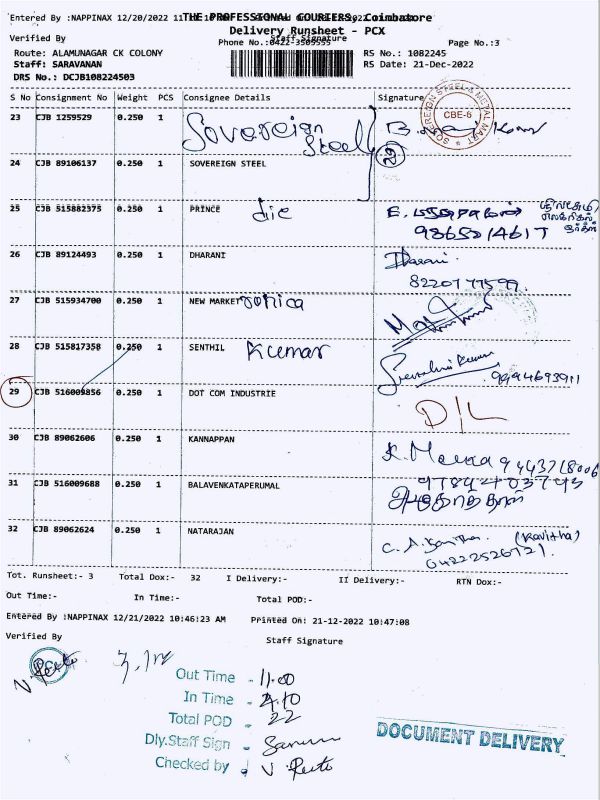 Entered By :NAPPINAX 12/20/2022 11:
THE PROFESSIONAL COURIERS, Coimbatore
Delivery Runsheet - PCX
Verified By
Staff Signature
Phone No.:0422-3505555
Page No.:3
Route: ALAMUNAGAR CK COLONY
RS No.: 1082245
Staff: SARAVANAN
RS Date: 21-Dec-2022
DRS No.: DCJB108224503
S No Consignment No Weight PCS Consignee Details Signature
SOVEREIGN STEEL & METAL MART
CBE-6
23 CJB 1259529 0.250 1 Sovereign Steel
24 CJB 89106137 0.250 1 SOVEREIGN STEEL
25 CJB 515882375 0.250 1 PRINCE die E.
26 CJB 89124493 0.250 1 DHARANI Dharani
8220177599
27 CJB 515934700 0.250 1 NEW MARKET
28 CJB 515817358 0.250 1 SENTHIL Kumar
29 CJB 516009856 0.250 1 DOT COM INDUSTRIE D/L
30 CJB 89062606 0.250 1 KANNAPPAN K.
31 CJB 516009688 0.250 1 BALAVENKATAPERUMAL
32 CJB 89062624 0.250 1 NATARAJAN C. A. (Kavitha)
Tot. Runsheet:- 3 Total Dox:- 32 I Delivery:- II Delivery:- RTN Dox:-
Out Time:- In Time:- Total POD:-
Entered By :NAPPINAX 12/21/2022 10:46:23 AM Printed On: 21-12-2022 10:47:08
Verified By Staff Signature
Out Time - 11.00
In Time - 4.10
Total POD - 22
Dly.Staff Sign -
Checked by -
DOCUMENT DELIVERY